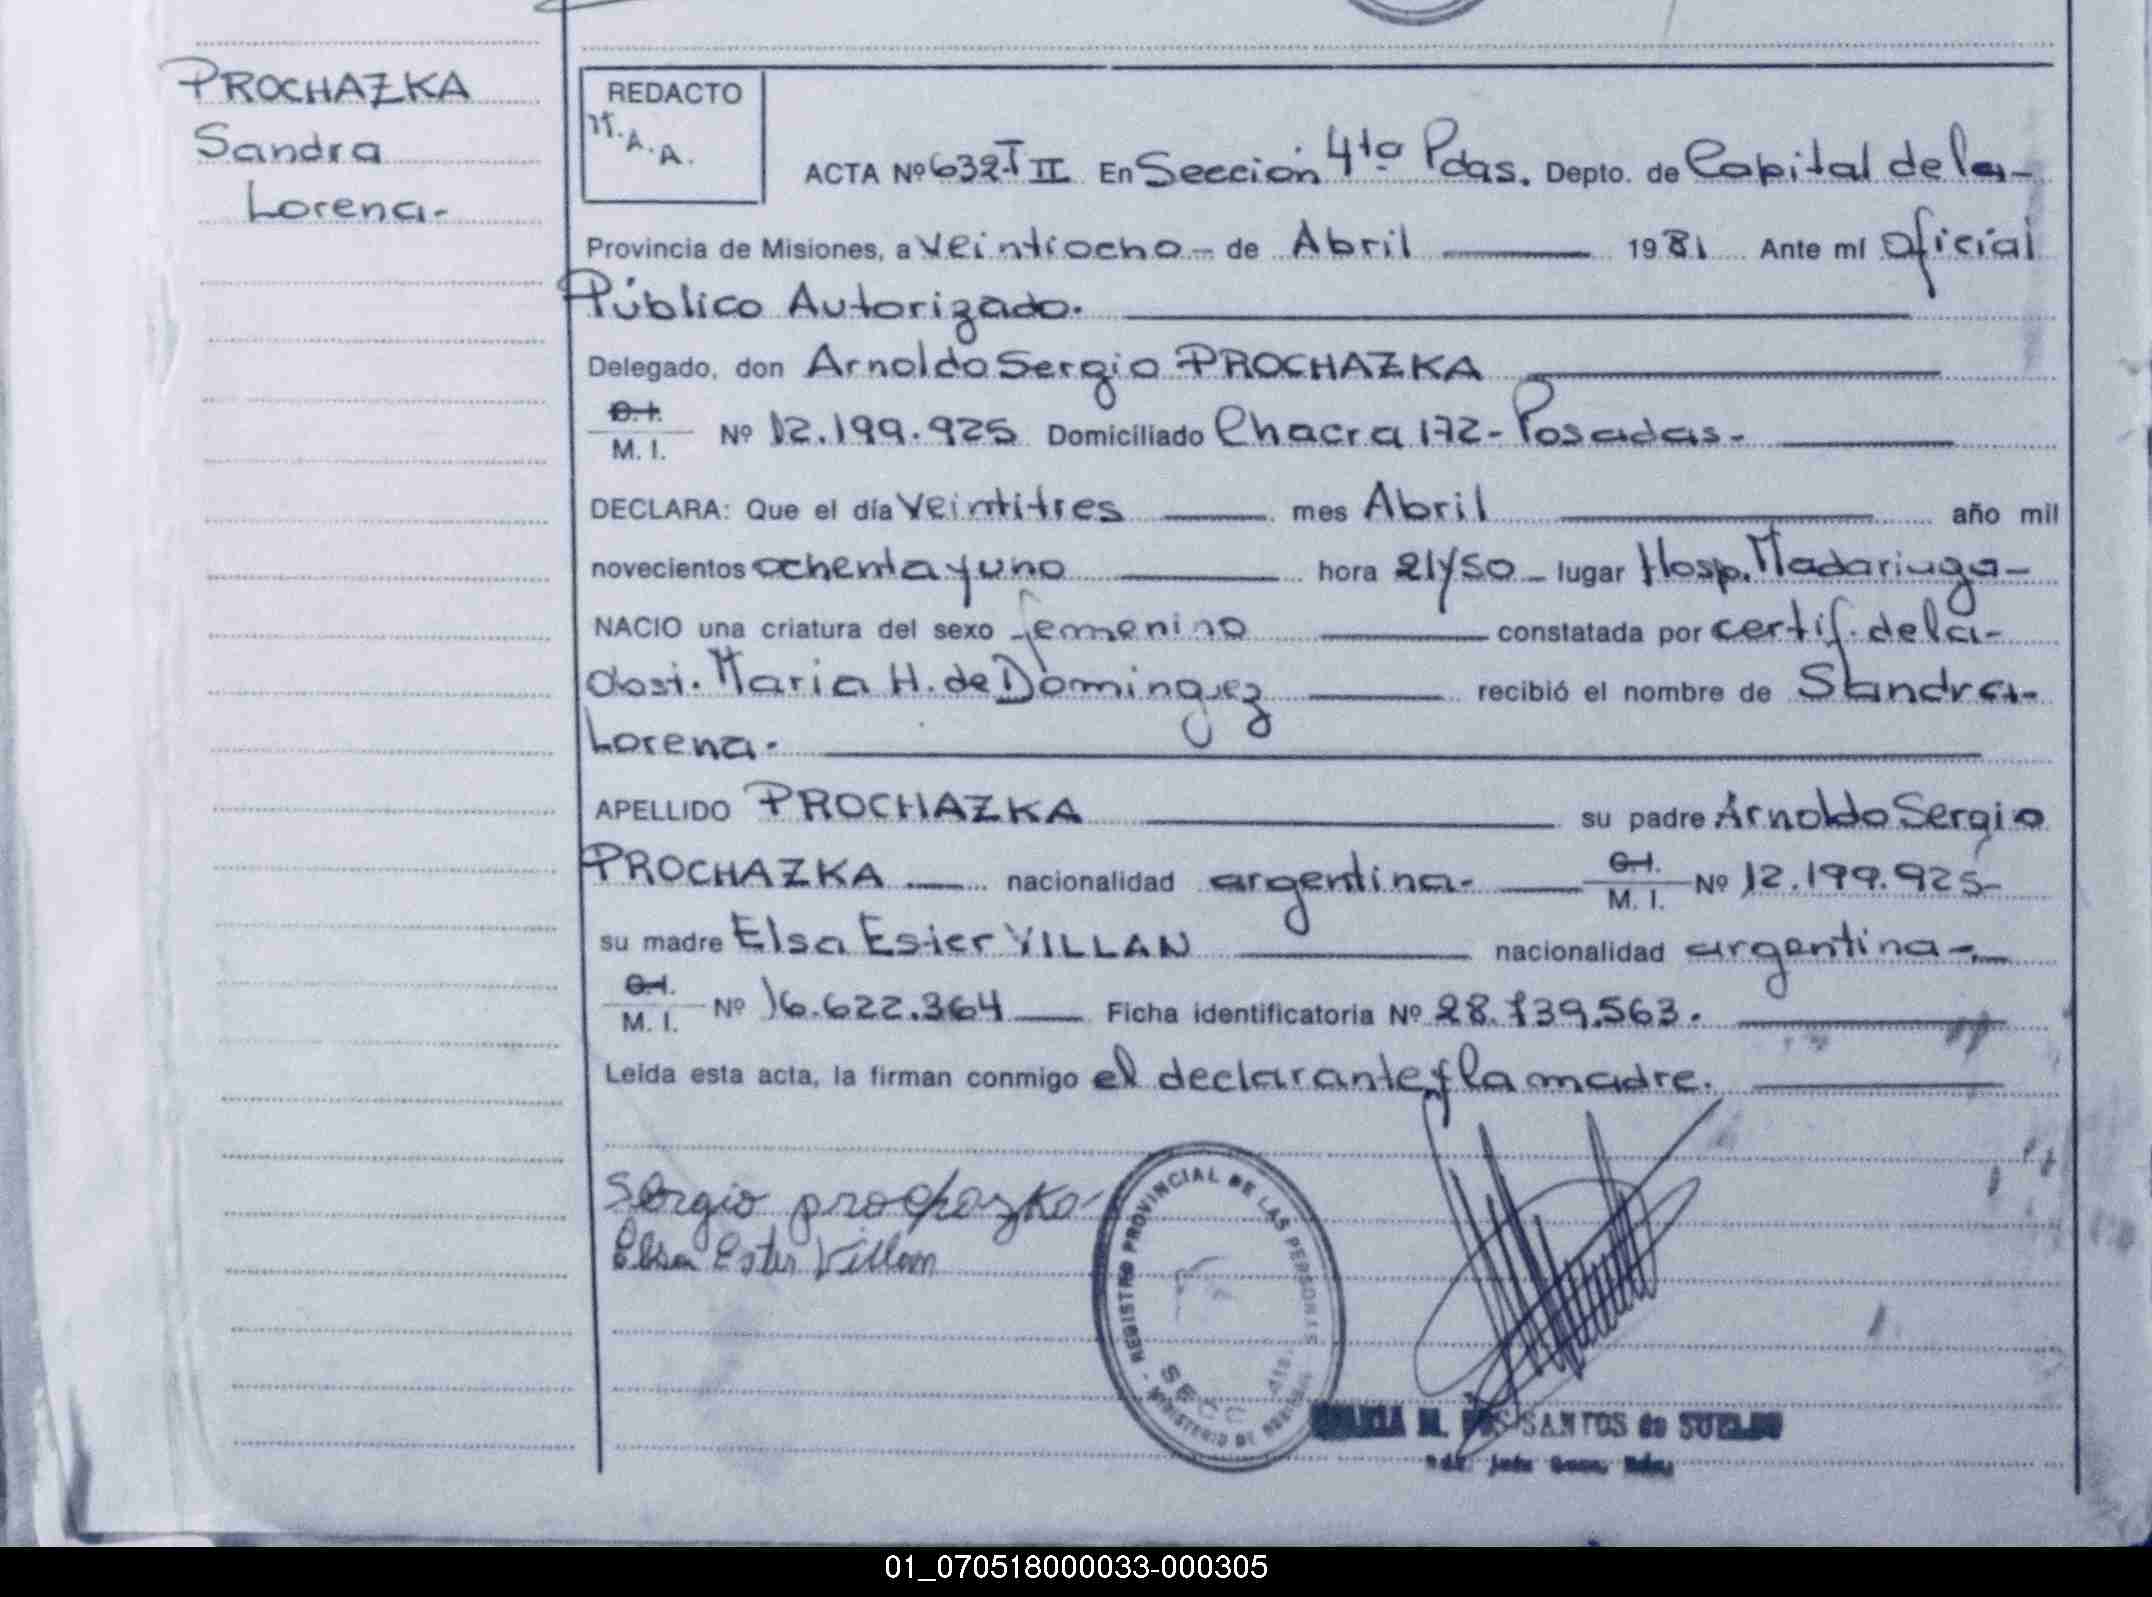 PROCHAZKA
Sandra
Lorena-
REDACTO
M.A.A.
ACTA Nº 632-T II En Sección 4ta Pdas. Depto. de Capital de la-
Provincia de Misiones, a veintiocho- de Abril 1981 Ante mí oficial
Público Autorizado.
Delegado, don Arnoldo Sergio PROCHAZKA
C.I. M.I. Nº 12.199.925 Domiciliado Chacra 172- Posadas-
DECLARA: Que el día veintitres mes Abril año mil
novecientos ochenta y uno hora 21y50- lugar Hosp. Madariaga-
NACIO una criatura del sexo femenino constatada por certif. de la-
obst. Maria H. de Dominguez recibió el nombre de Sandra-
Lorena-
APELLIDO PROCHAZKA su padre Arnoldo Sergio
PROCHAZKA nacionalidad argentina- C.I. M.I. Nº 12.199.925-
su madre Elsa Ester VILLAN nacionalidad argentina-
C.I. M.I. Nº 16.622.364 Ficha identificatoria Nº 28.739.563.
Leída esta acta, la firman conmigo el declarante y la madre.
Sergio prochazka
Elsa Ester Villan
REGISTRO PROVINCIAL DE LAS PERSONAS
MINISTERIO DE
SECC
M. DOS SANTOS de SUELDO
01_070518000033-000305